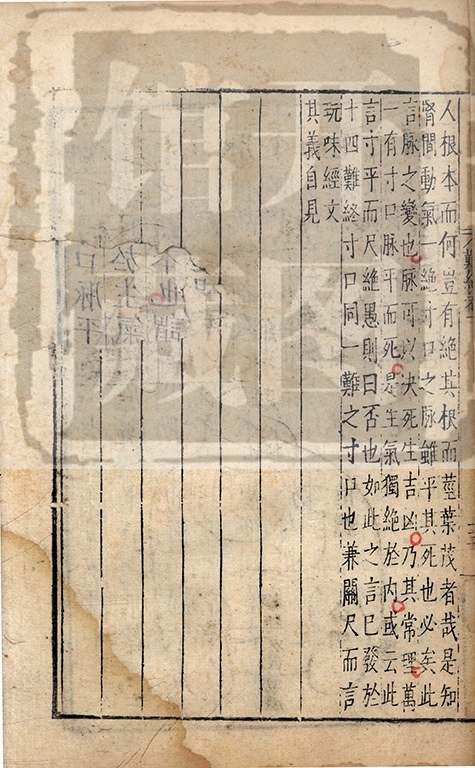 人根本而何豈有絕其根而莖葉茂者哉是知
腎間動氣一絕寸口之脉雖平其死也必矣此
言脉之變也脉可以决死生吉凶乃其常理萬
一有寸口脉平而死是生氣獨絕於內或云此
言寸平而尺絕愚則曰否也如此之言已發於
十四難終寸口同一難之寸口也兼關尺而言
玩味經文
其義自見
本也謂
於生氣
口脉平